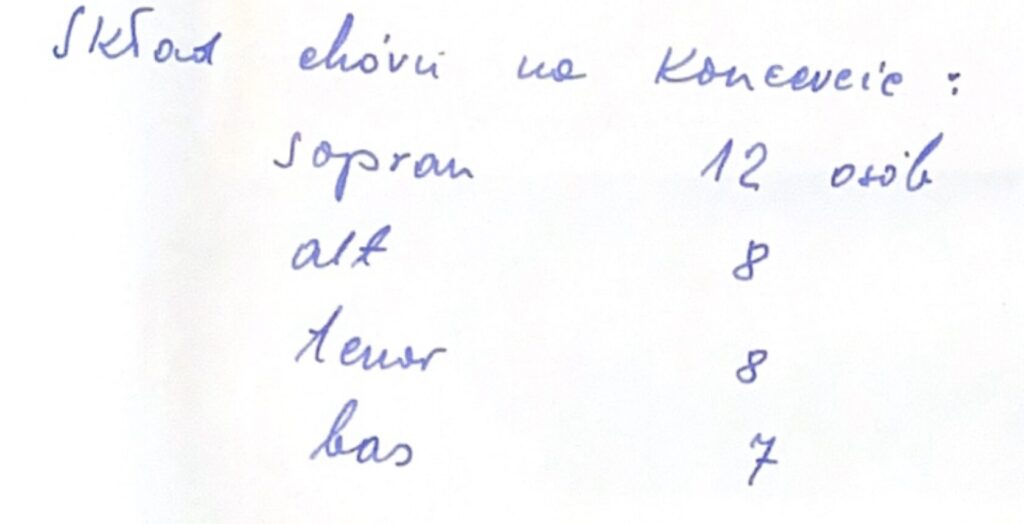 Skład chóru na koncercie :
sopran 12 osób
alt 8
tenor 8
bas 7